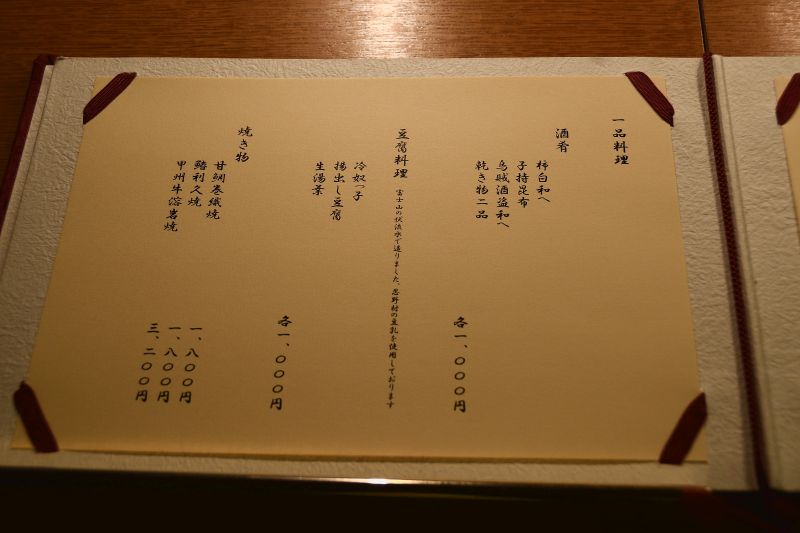 一品料理
酒肴
柿白和へ
子持昆布
烏賊酒盗和へ
乾き物二品
各一、〇〇〇円
豆腐料理
富士山の伏流水で造りました、忍野村の豆乳を使用しております
冷奴っ子
揚出し豆腐
生湯葉
各一、〇〇〇円
焼き物
甘鯛巻繊焼
鰆利久焼
甲州牛溶岩焼
一、八〇〇円
一、八〇〇円
三、二〇〇円